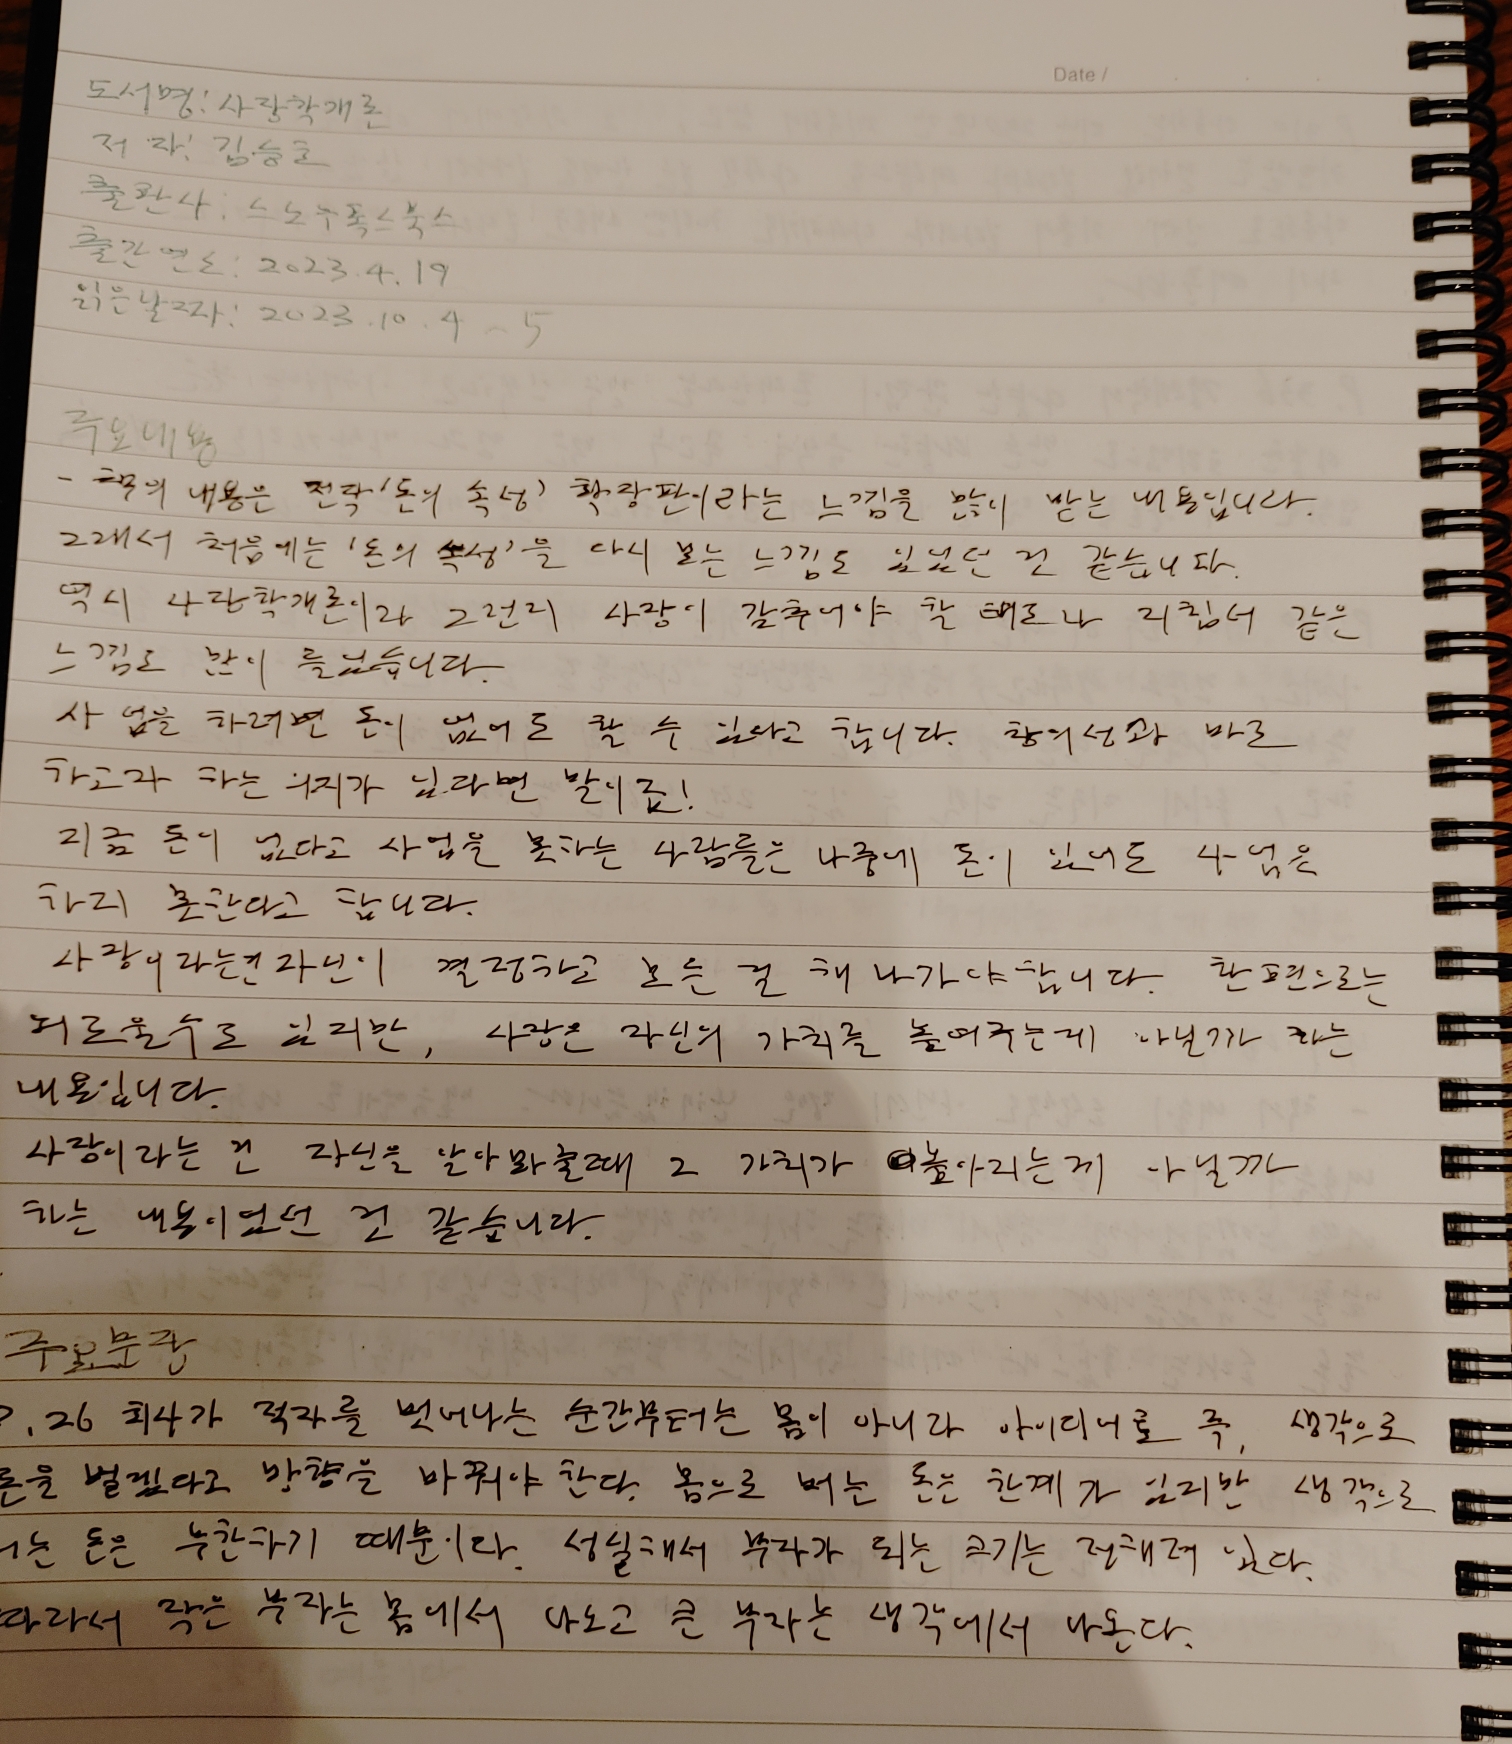 Date /
도서명: 사장학개론
저 자: 김승호
출판사: 스노우폭스북스
출간연도: 2023.4.19
읽은날짜: 2023.10.4 ~ 5
주요내용
- 책의 내용은 전작 '돈의 속성' 확장판이라는 느낌을 많이 받는 내용입니다.
그래서 처음에는 '돈의 속성'을 다시 보는 느낌도 있었던 건 같습니다.
역시 사장학개론이라 그런지 사장이 갖추어야 할 태도나 지침서 같은
느낌도 많이 들었습니다.
사업을 하려면 돈이 없어도 할 수 있다고 합니다. 창의성과 바로
하고자 하는 의지가 있다면 말이죠!
지금 돈이 없다고 사업을 못하는 사람들은 나중에 돈이 있어도 사업은
하지 못한다고 합니다.
사장이라는건 자신이 결정하고 모든 걸 해 나가야 합니다. 한편으로는
외로울수도 있지만, 사장은 자신의 가치를 높여주는게 아닐까 하는
내용입니다.
사장이라는 건 자신을 알아봐줄때 그 가치가 높아지는게 아닐까
하는 내용이었던 건 같습니다.
주요문장
P.26 회사가 적자를 벗어나는 순간부터는 몸이 아니라 아이디어로 즉, 생각으로
돈을 벌겠다고 방향을 바꿔야 한다. 몸으로 버는 돈은 한계가 있지만 생각으로
버는 돈은 무한하기 때문이다. 성실해서 부자가 되는 크기는 정해져 있다.
따라서 작은 부자는 몸에서 나오고 큰 부자는 생각에서 나온다.